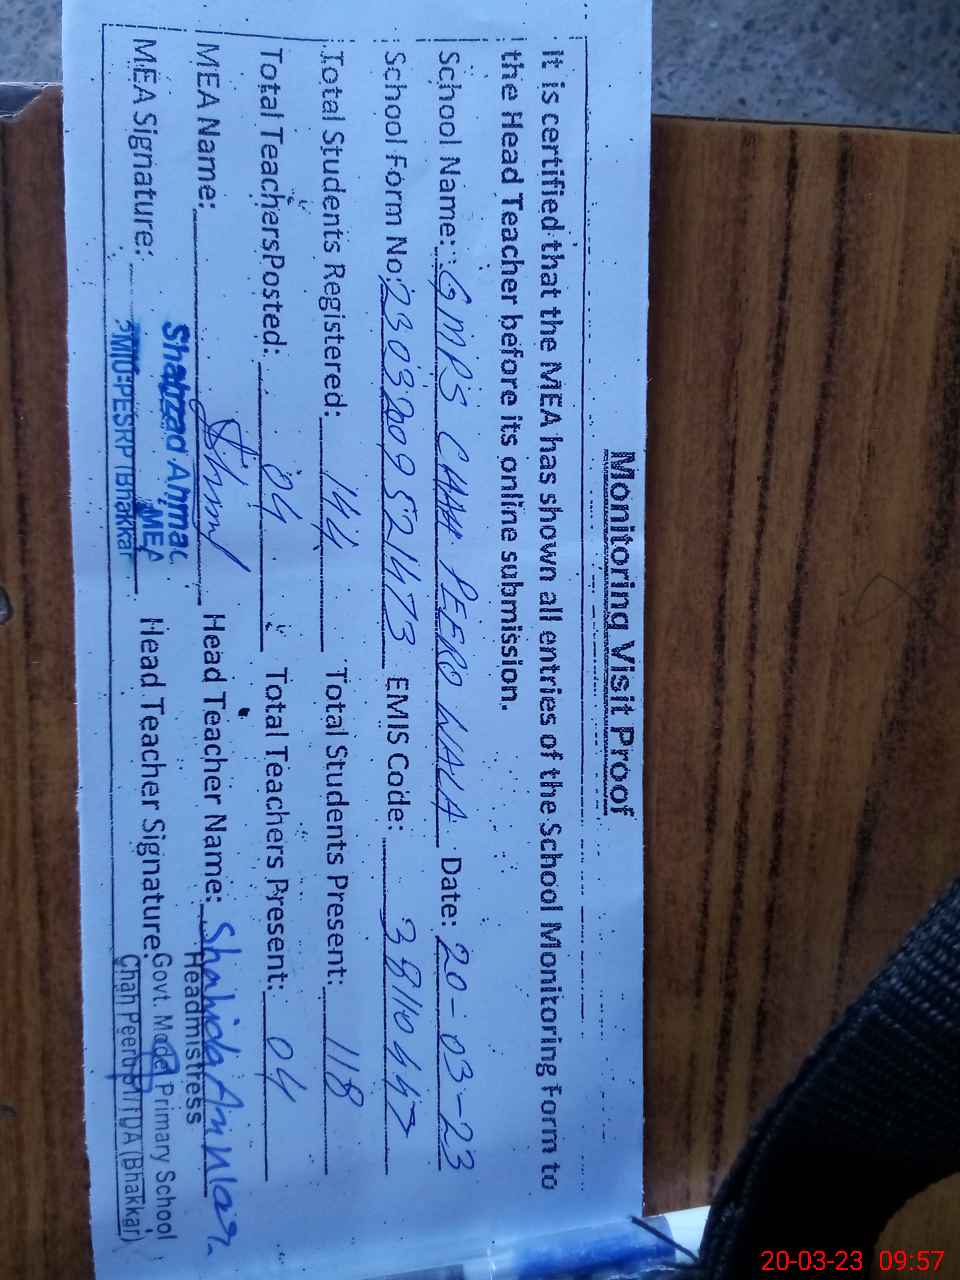 Monitoring Visit Proof
It is certified that the MEA has shown all entries of the School Monitoring Form to
the Head Teacher before its online submission.
School Name: GMPS CHAH PEERO WALA Date: 20-03-23
School Form No: 23032009521473 EMIS Code: 38110447
Total Students Registered: 144 Total Students Present: 118
Total Teachers Posted: 04 Total Teachers Present: 04
MEA Name: Head Teacher Name: Shahida Anwar
Headmistress
Shahzad Ahmad
MEA
MEA Signature: PMIU-PESRP (Bhakkar Head Teacher Signature: Govt. Model Primary School
Chah Peeru TDA (Bhakkar)
20-03-23 09:57